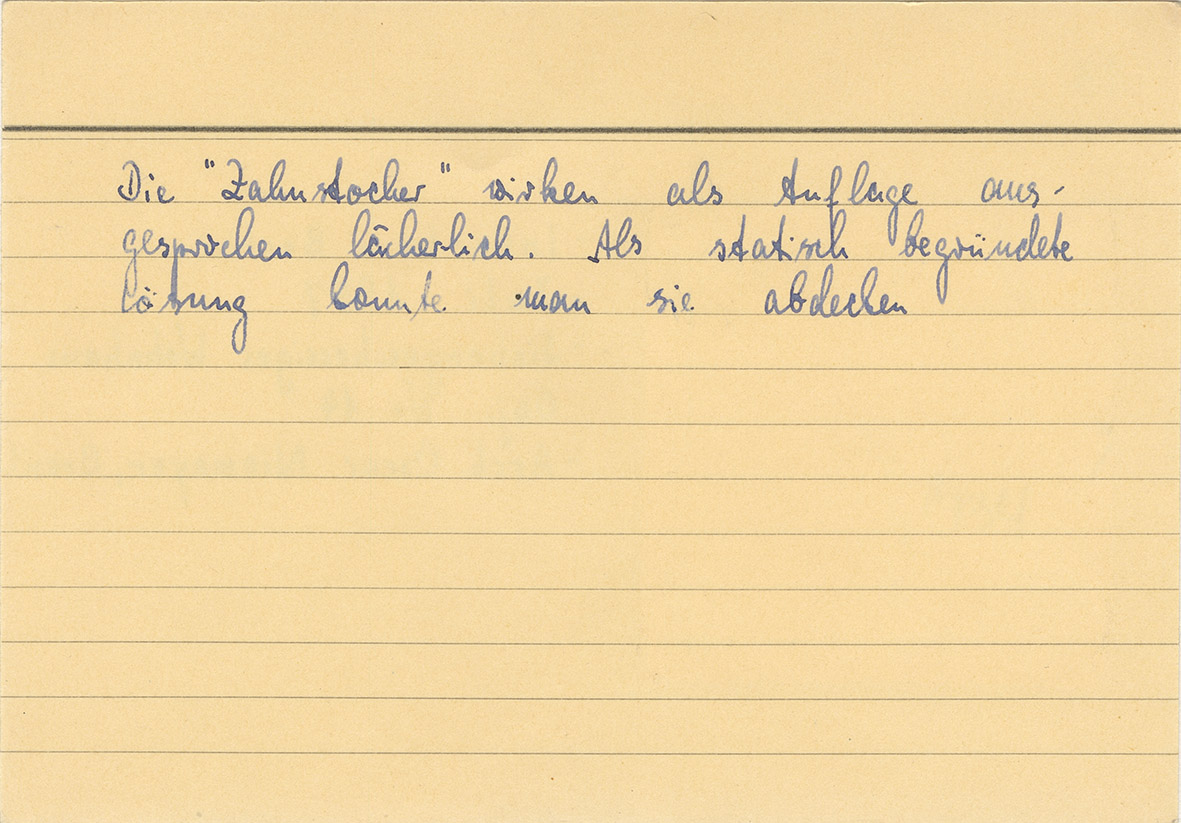 Die "Zahnstocher" wirken als Auflage aus-
gesprochen lächerlich. Als statisch begründete
Lösung konnte man sie abdecken